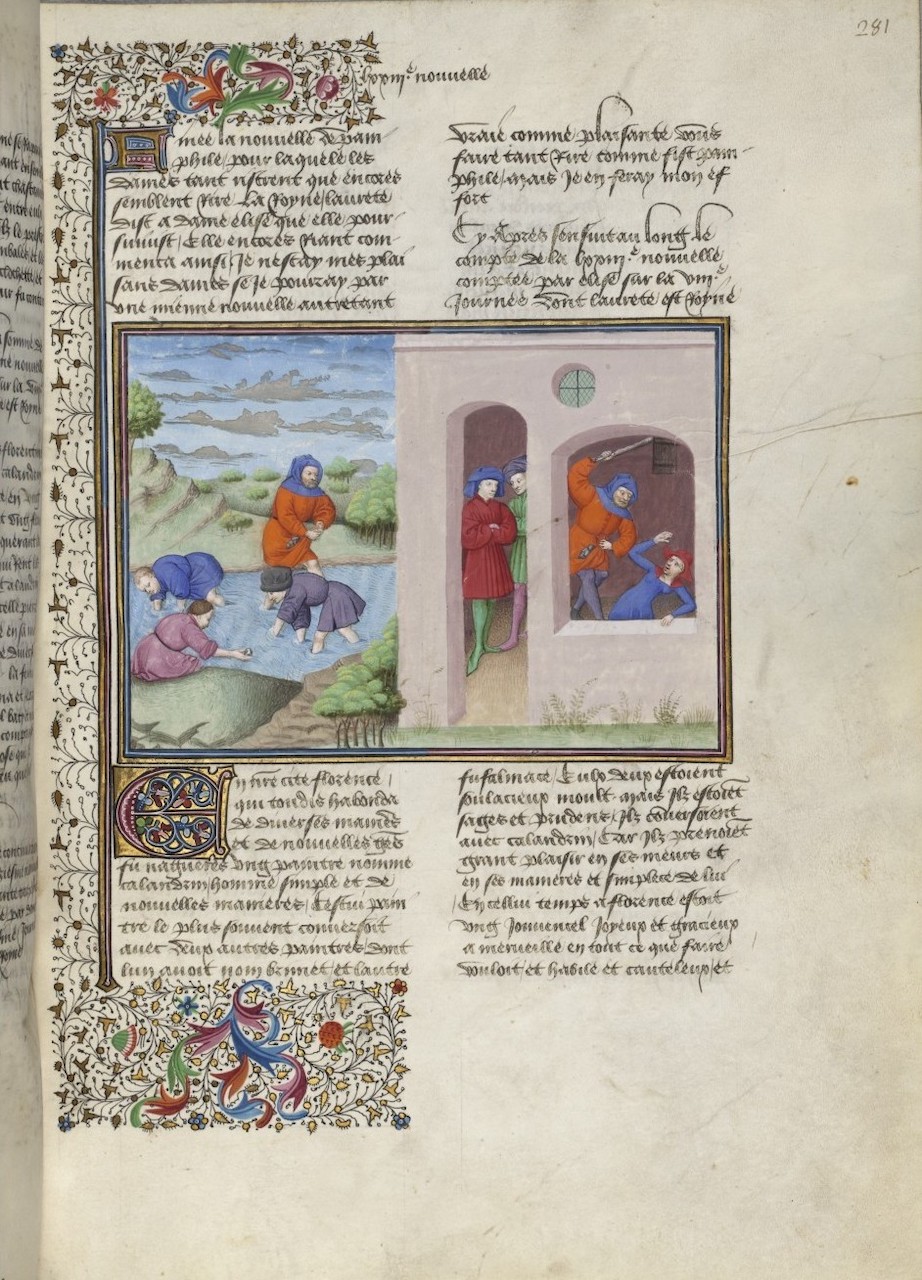 281
lxxiii.e nouvelle
inee la nouvelle de pam
phile pour laquele les
dames tant ristrent que encores
semblent rire La royne laurete
dist a dame elise que elle pour-
suiuist / Elle encores riant com-
menca ainsi Je ne scay mes plai
sans dames se je pourray par
une mienne nouvelle autretant
vraie comme plaisante vous
faire tant rire comme fist pam-
phile / mais Je en feray mon ef
fort
Cy apres sensuit au long le
compte de la lxxiii.e nouvelle
comptee par elise sur la viii.e
Journee dont laurete est royne
En nre cite florence /
qui tousdis habonda
de diverses manieres
et de nouvelles gens
fu nagueres ung paintre nomme
calandrin homme simple et de
nouvelles manieres / Cestui pain
tre le plus souvent conversoit
avec deux autres paintres / dont
lun avoit nom brunet et lautre
fu falmace / Eulx deux estoient
soulacieux moult mais Ilz estoiet
sages et prudens / Ilz conversoient
avec calandrin / Car Ilz prenoiet
grant plaisir en ses meurs et
en ses manieres et simplece de lui
/ En cellui temps a florence estoit
ung Jouvencel Joyeux et gracieux
a merveille en tout ce que faire
vouloit / et habile et cauteleux / et